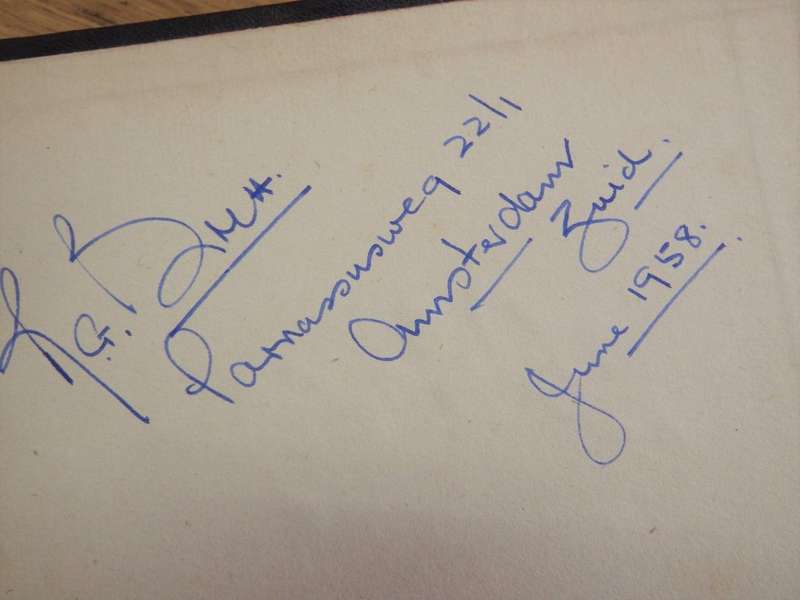 G.
Parnassusweg 22/1
Amsterdam
Zuid.
June 1958.